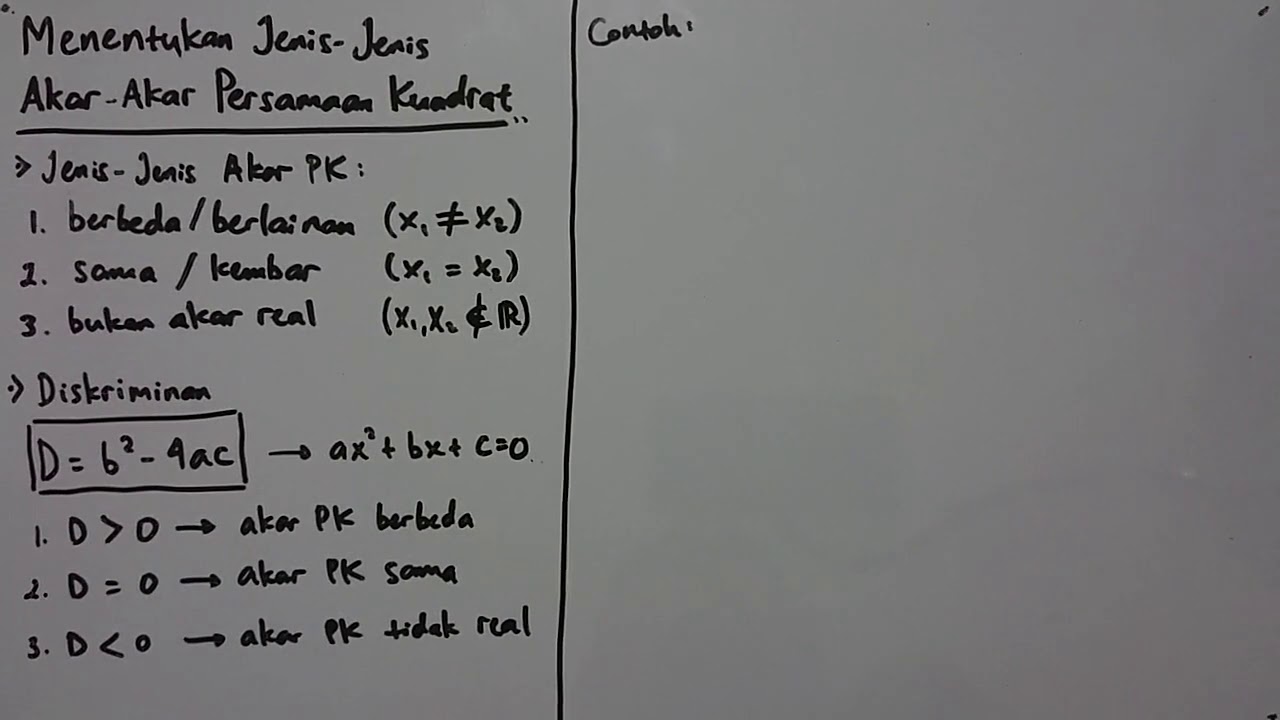 Menentukan Jenis-Jenis
Akar-Akar Persamaan Kuadrat
> Jenis-Jenis Akar PK:
1. berbeda/berlainan (x₁ ≠ x₂)
2. sama / kembar (x₁ = x₂)
3. bukan akar real (x₁,x₂ ∉ ℝ)
> Diskriminan
D = b² - 4ac → ax² + bx + c = 0
1. D > 0 → akar PK berbeda
2. D = 0 → akar PK sama
3. D < 0 → akar PK tidak real
Contoh: